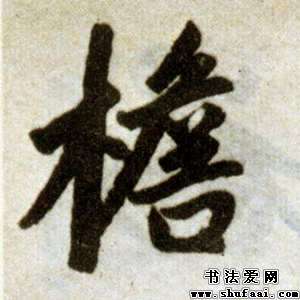 檐
书法爱网
www.shufaai.com